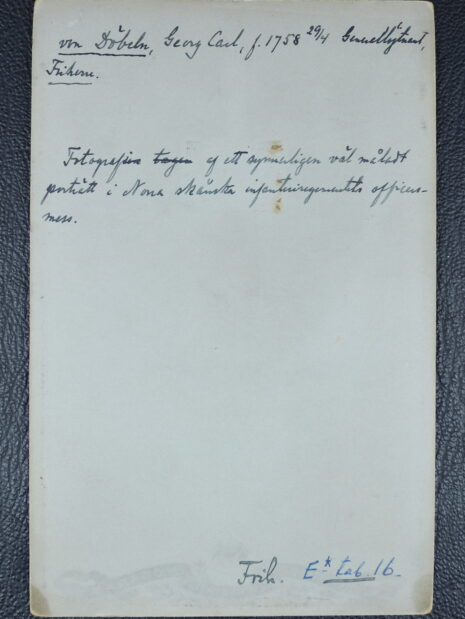 von Döbeln, Georg Carl, f. 1758 29/4 Generallöjtnant,
Friherre.
Fotografi tagen af ett synnerligen väl måladt
porträtt i Norra skånska infanteriregementets officers-
mess.
Frih. E* tab. 16.